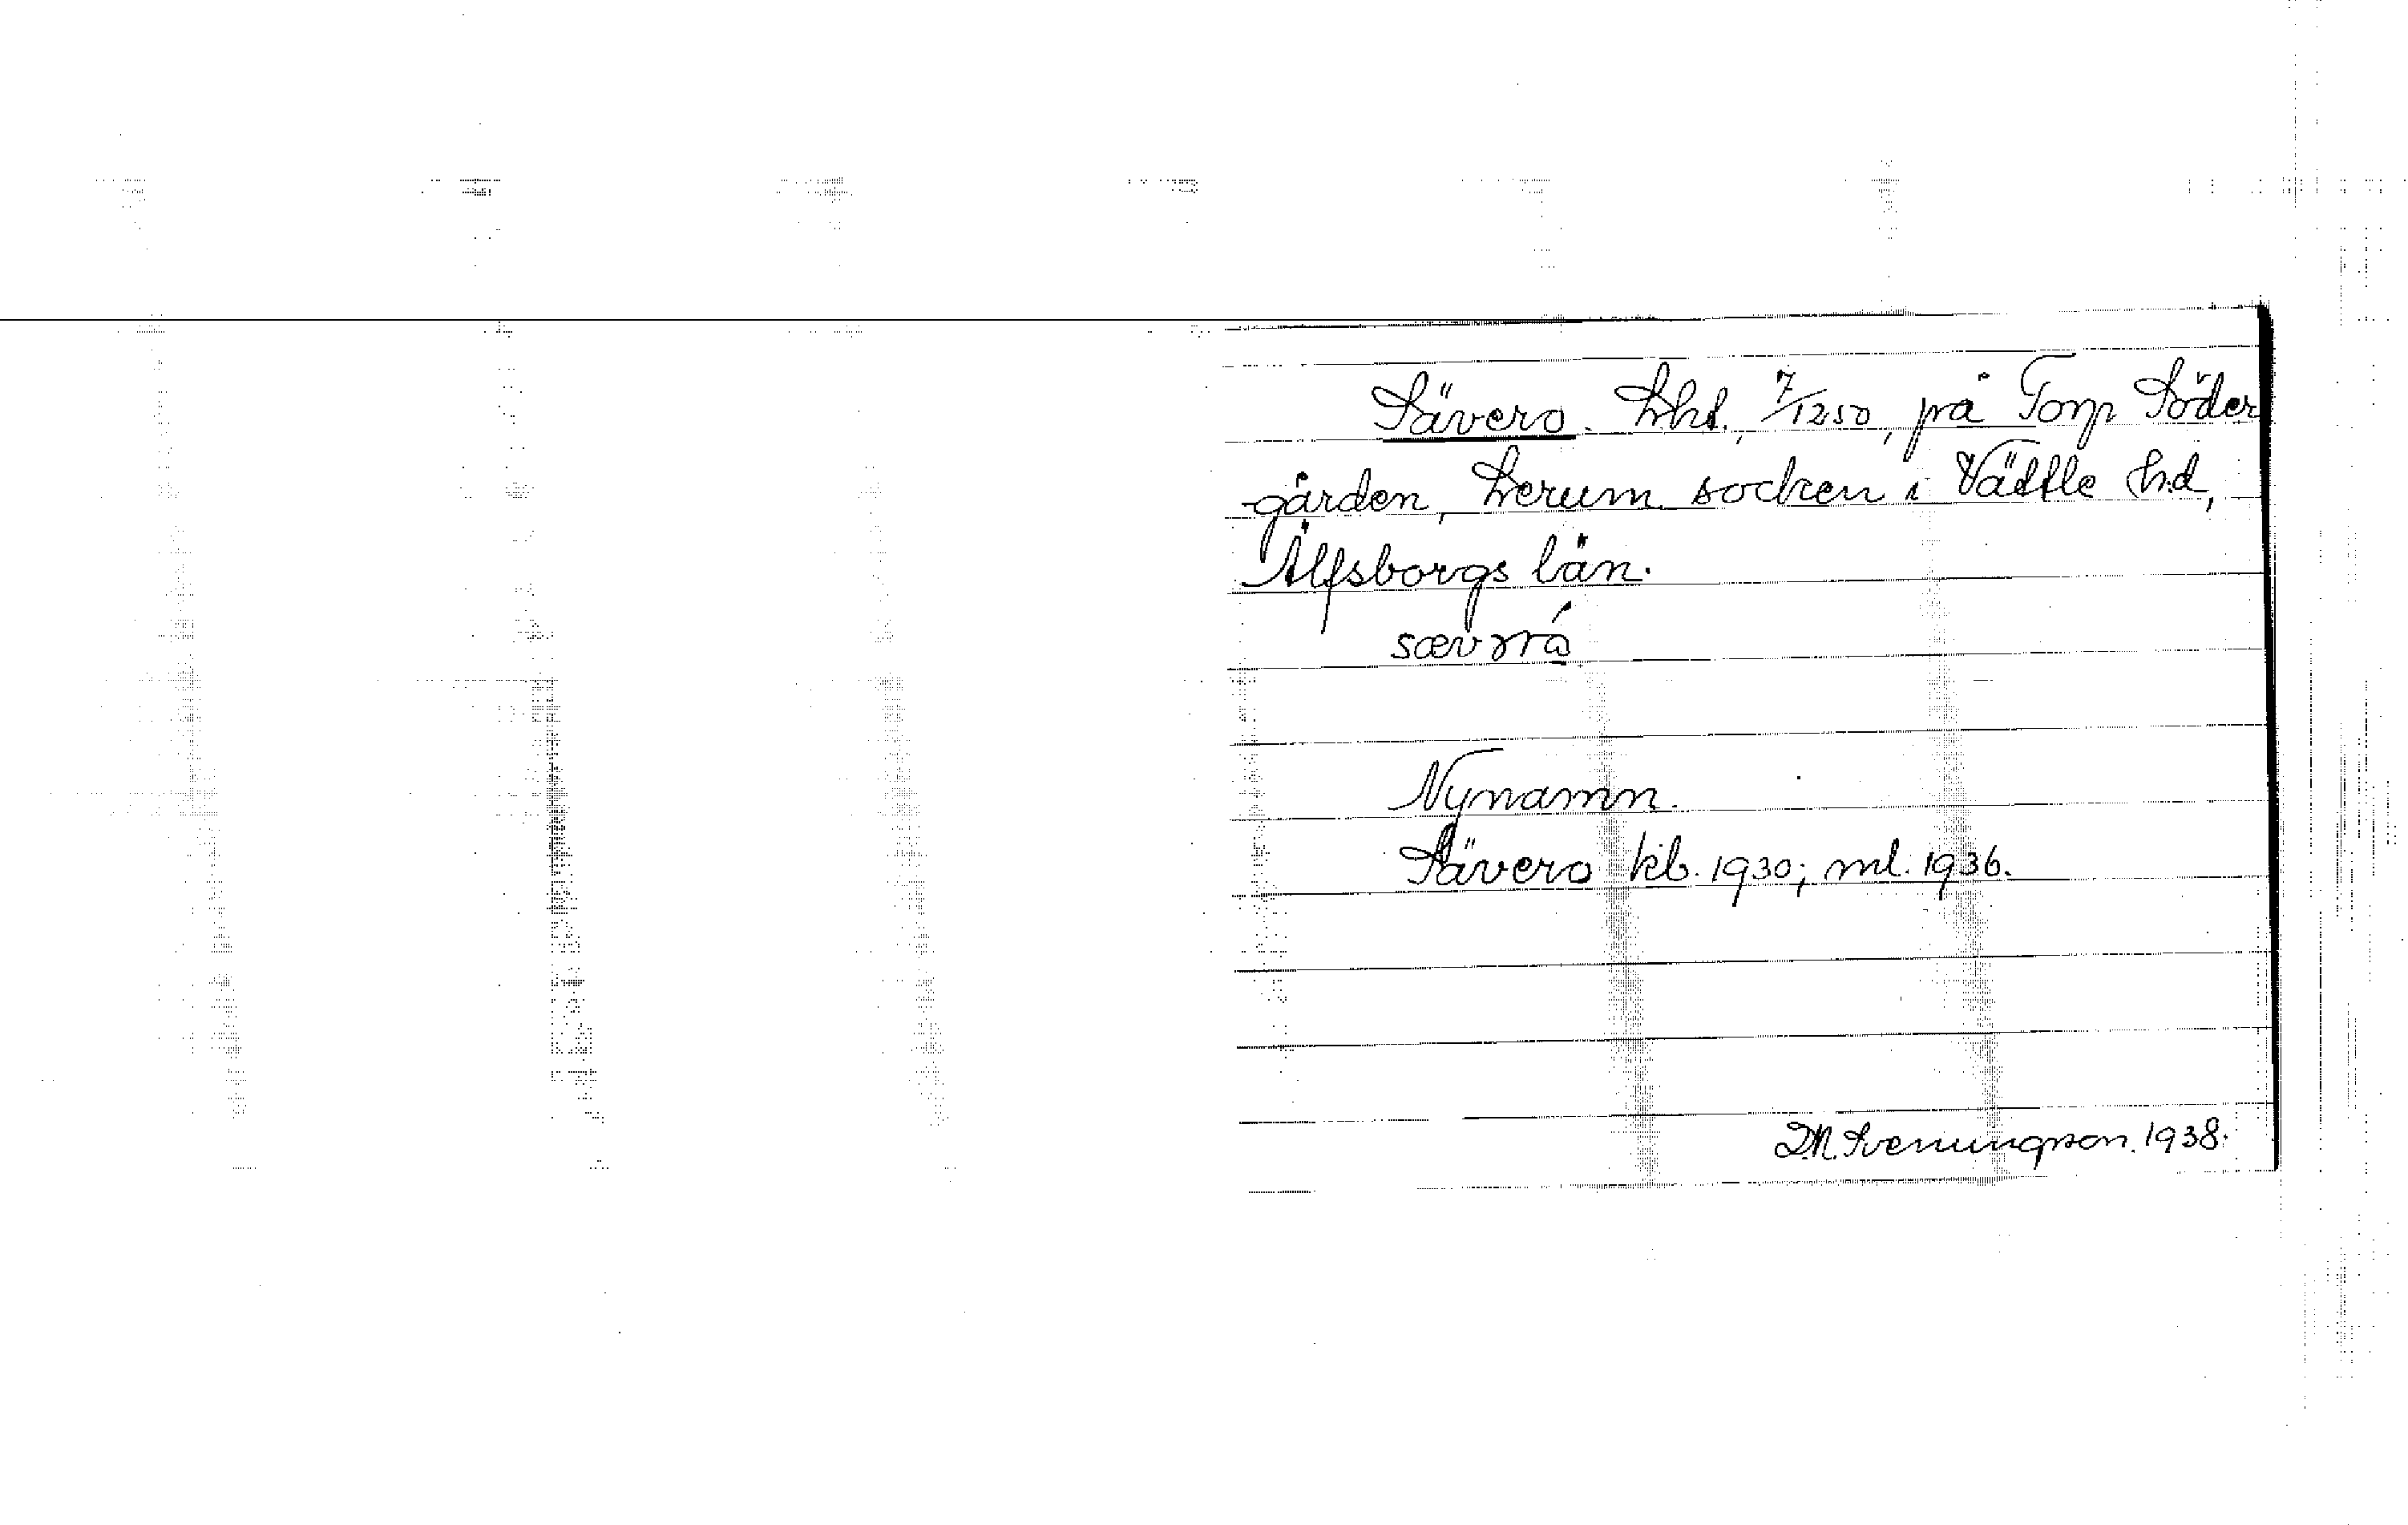 Sävero. Lht., 7/1250, på Torp Söder
gården, Lerum socken i Vättle hd,
Älfsborgs län.
Nynamn.
Sävero kb. 1930; ml. 1936.
D.N. Svenungson. 1938.